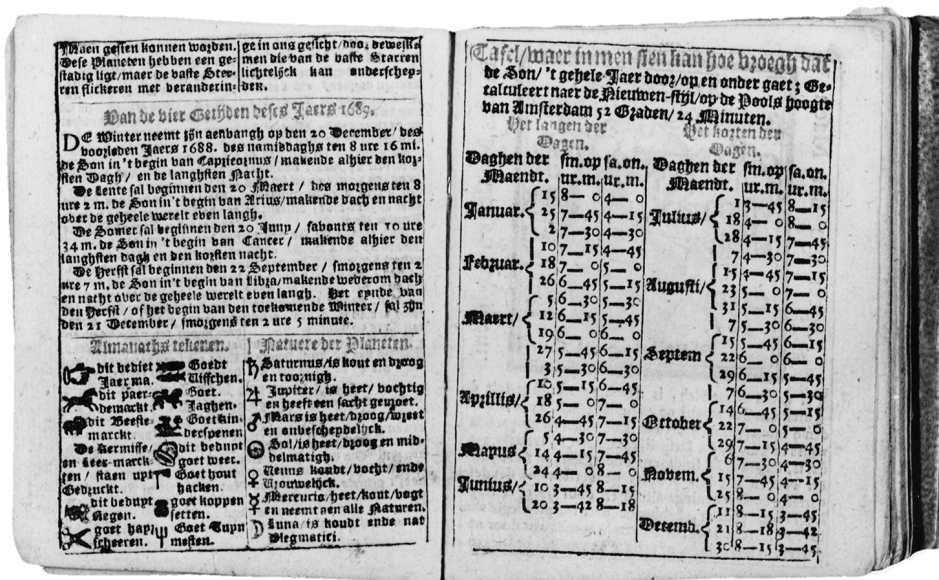 Maen gesien konnen worden.
Dese Planeten hebben een ge-
stadig ligt/ maer de vaste Ster-
ren flickeren met veranderin-
ge in ons gesicht/ door deweske
men die van de vaste Starren
lichtelijck kan onderschep-
den.
Van de vier Getijden deses Jaers 1689.
DE Winter neemt zijn aenvangh op den 20 December/ des
voorleden Jaers 1688. des namiddaghs ten 8 ure 16 mi.
de Son in 't begin van Capricornus/ makende alhier den kor-
sten Dagh/ en de langhsten Nacht.
De Lente sal beginnen den 20 Maert / des morgens ten 8
ure 2 m. de Son in 't begin van Arius/ makende dach en nacht
over de geheele werelt even langh.
De Somer sal beginnen den 20 Juny / savonts ten 10 ure
34 m. de Son in 't begin van Cancer / makende alhier den
langhsten dagh en den korsten nacht.
De Herfst sal beginnen den 22 September / smorgens ten 2
ure 7 m. de Son in 't begin van Libra/ makende wederom dach
en nacht over de geheele werelt even langh. Het eynde van
den Herfst / of het begin van den toekomende Winter / sal zijn
den 21 December / smorgens ten 2 ure 5 minute.
Almanachs tekenen.
dit bediet
Jaer ma.
dit paer-
demarckt.
dit Beeste-
marckt.
De Kermisse/
en Leer-marck-
ten / staen upt
Gedruckt.
dit bedupt
Regen.
goet hayr
scheeren.
Goedt
Visschen.
Goet
Jaghen.
Goet kin-
derspenen
dit bedupt
goet weer.
Goet hout
hacken.
goet koppen
setten.
Goet Tuyn
mesten.
Natuere der Planeten.
♄ Saturnus/ is kout en droog
en toornigh.
♃ Jupiter/ is heet/ vochtig
en heeft een sacht gemoet.
♂ Mars is heet/ droog/ wreet
en onbescheydelijck.
☉ Sol/ is heet/ droog en mid-
delmatigh.
♀ Venus koudt/ vocht/ ende
Vrouwelijck.
☿ Mercurio/ heet/ kout/ vogt
en neemt aen alle Naturen.
☽ Luna/ is koudt ende nat
Vlegmatici.
Tafel/ waer in men sien kan hoe vroegh dat
de Son/ 't gehele Jaer door/ op en onder gaet; Ge-
calculeert naer de Nieuwen-stijl/ op de Pools hoogte
van Amsterdam 52 Graden/ 24 Minuten.
Het langen der
Dagen.
Daghen der sm.op sa.on.
Maendt. ur.m. ur.m.
15 8—0 4—0
Januar. 25 7—45 4—15
2 7—30 4—30
10 7—15 4—45
Februar. 18 7—0 5—0
26 6—45 5—15
5 6—30 5—30
Maert/ 12 6—15 5—45
19 6—0 6—0
27 5—45 6—15
3 5—30 6—30
10 5—15 6—45
Aprillis/ 18 5—0 7—0
26 4—45 7—15
5 4—30 7—30
Mayus 14 4—15 7—45
24 4—0 8—0
Junius/ 10 3—45 8—15
20 3—42 8—18
Het korten der
Dagen.
Daghen der sm.op sa.on.
Maendt. ur.m. ur.m.
1 3—45 8—15
Julius/ 18 4—0 8—0
28 4—15 7—45
7 4—30 7—30
15 4—45 7—15
Augusti/ 23 5—0 7—0
31 5—15 6—45
7 5—30 6—30
15 5—45 6—15
Septem 22 6—0 6—0
29 6—15 5—45
7 6—30 5—30
14 6—45 5—15
October 22 7—0 5—0
29 7—15 4—45
6 7—30 4—30
Novem. 15 7—45 4—15
25 8—0 4—0
11 8—15 3—45
Decemb. 21 8—18 3—42
30 8—15 3—45